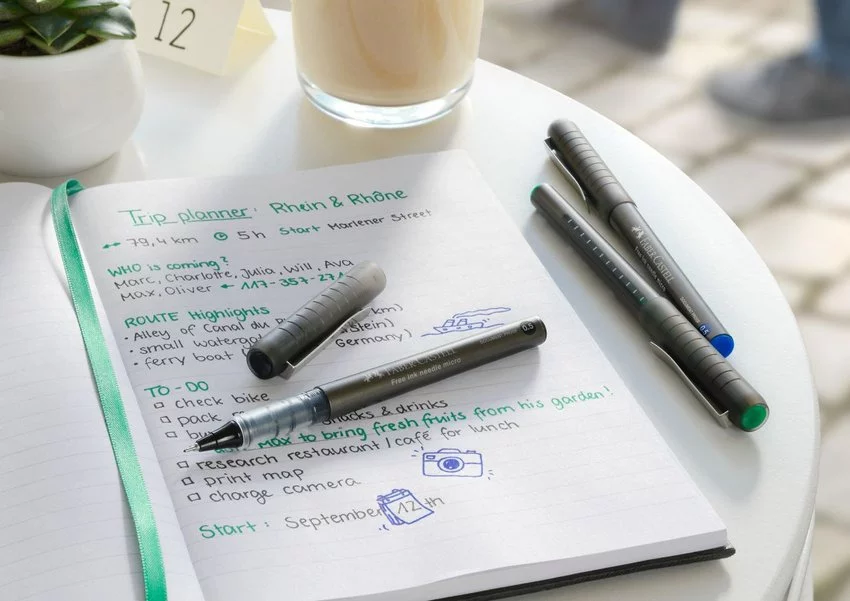 12
Trip planner: Rhein & Rhône
↔ 79,4 km 5h Start Marlener Street
WHO is coming?
Marc, Charlotte, Julia, Will, Ava
Max, Oliver ← 117-357-27
ROUTE Highlights
• Alley of Canal du km)
• small stein)
• ferry boat Germany)
TO-DO
□ check bike
□ pack snacks & drinks
□ Max to bring fresh fruits from his garden!
□ research restaurant/café for lunch
□ print map
□ charge camera
Start: September 12th
FABER-CASTELL
Free ink needle micro
0.5
FABER-CASTELL
0.5